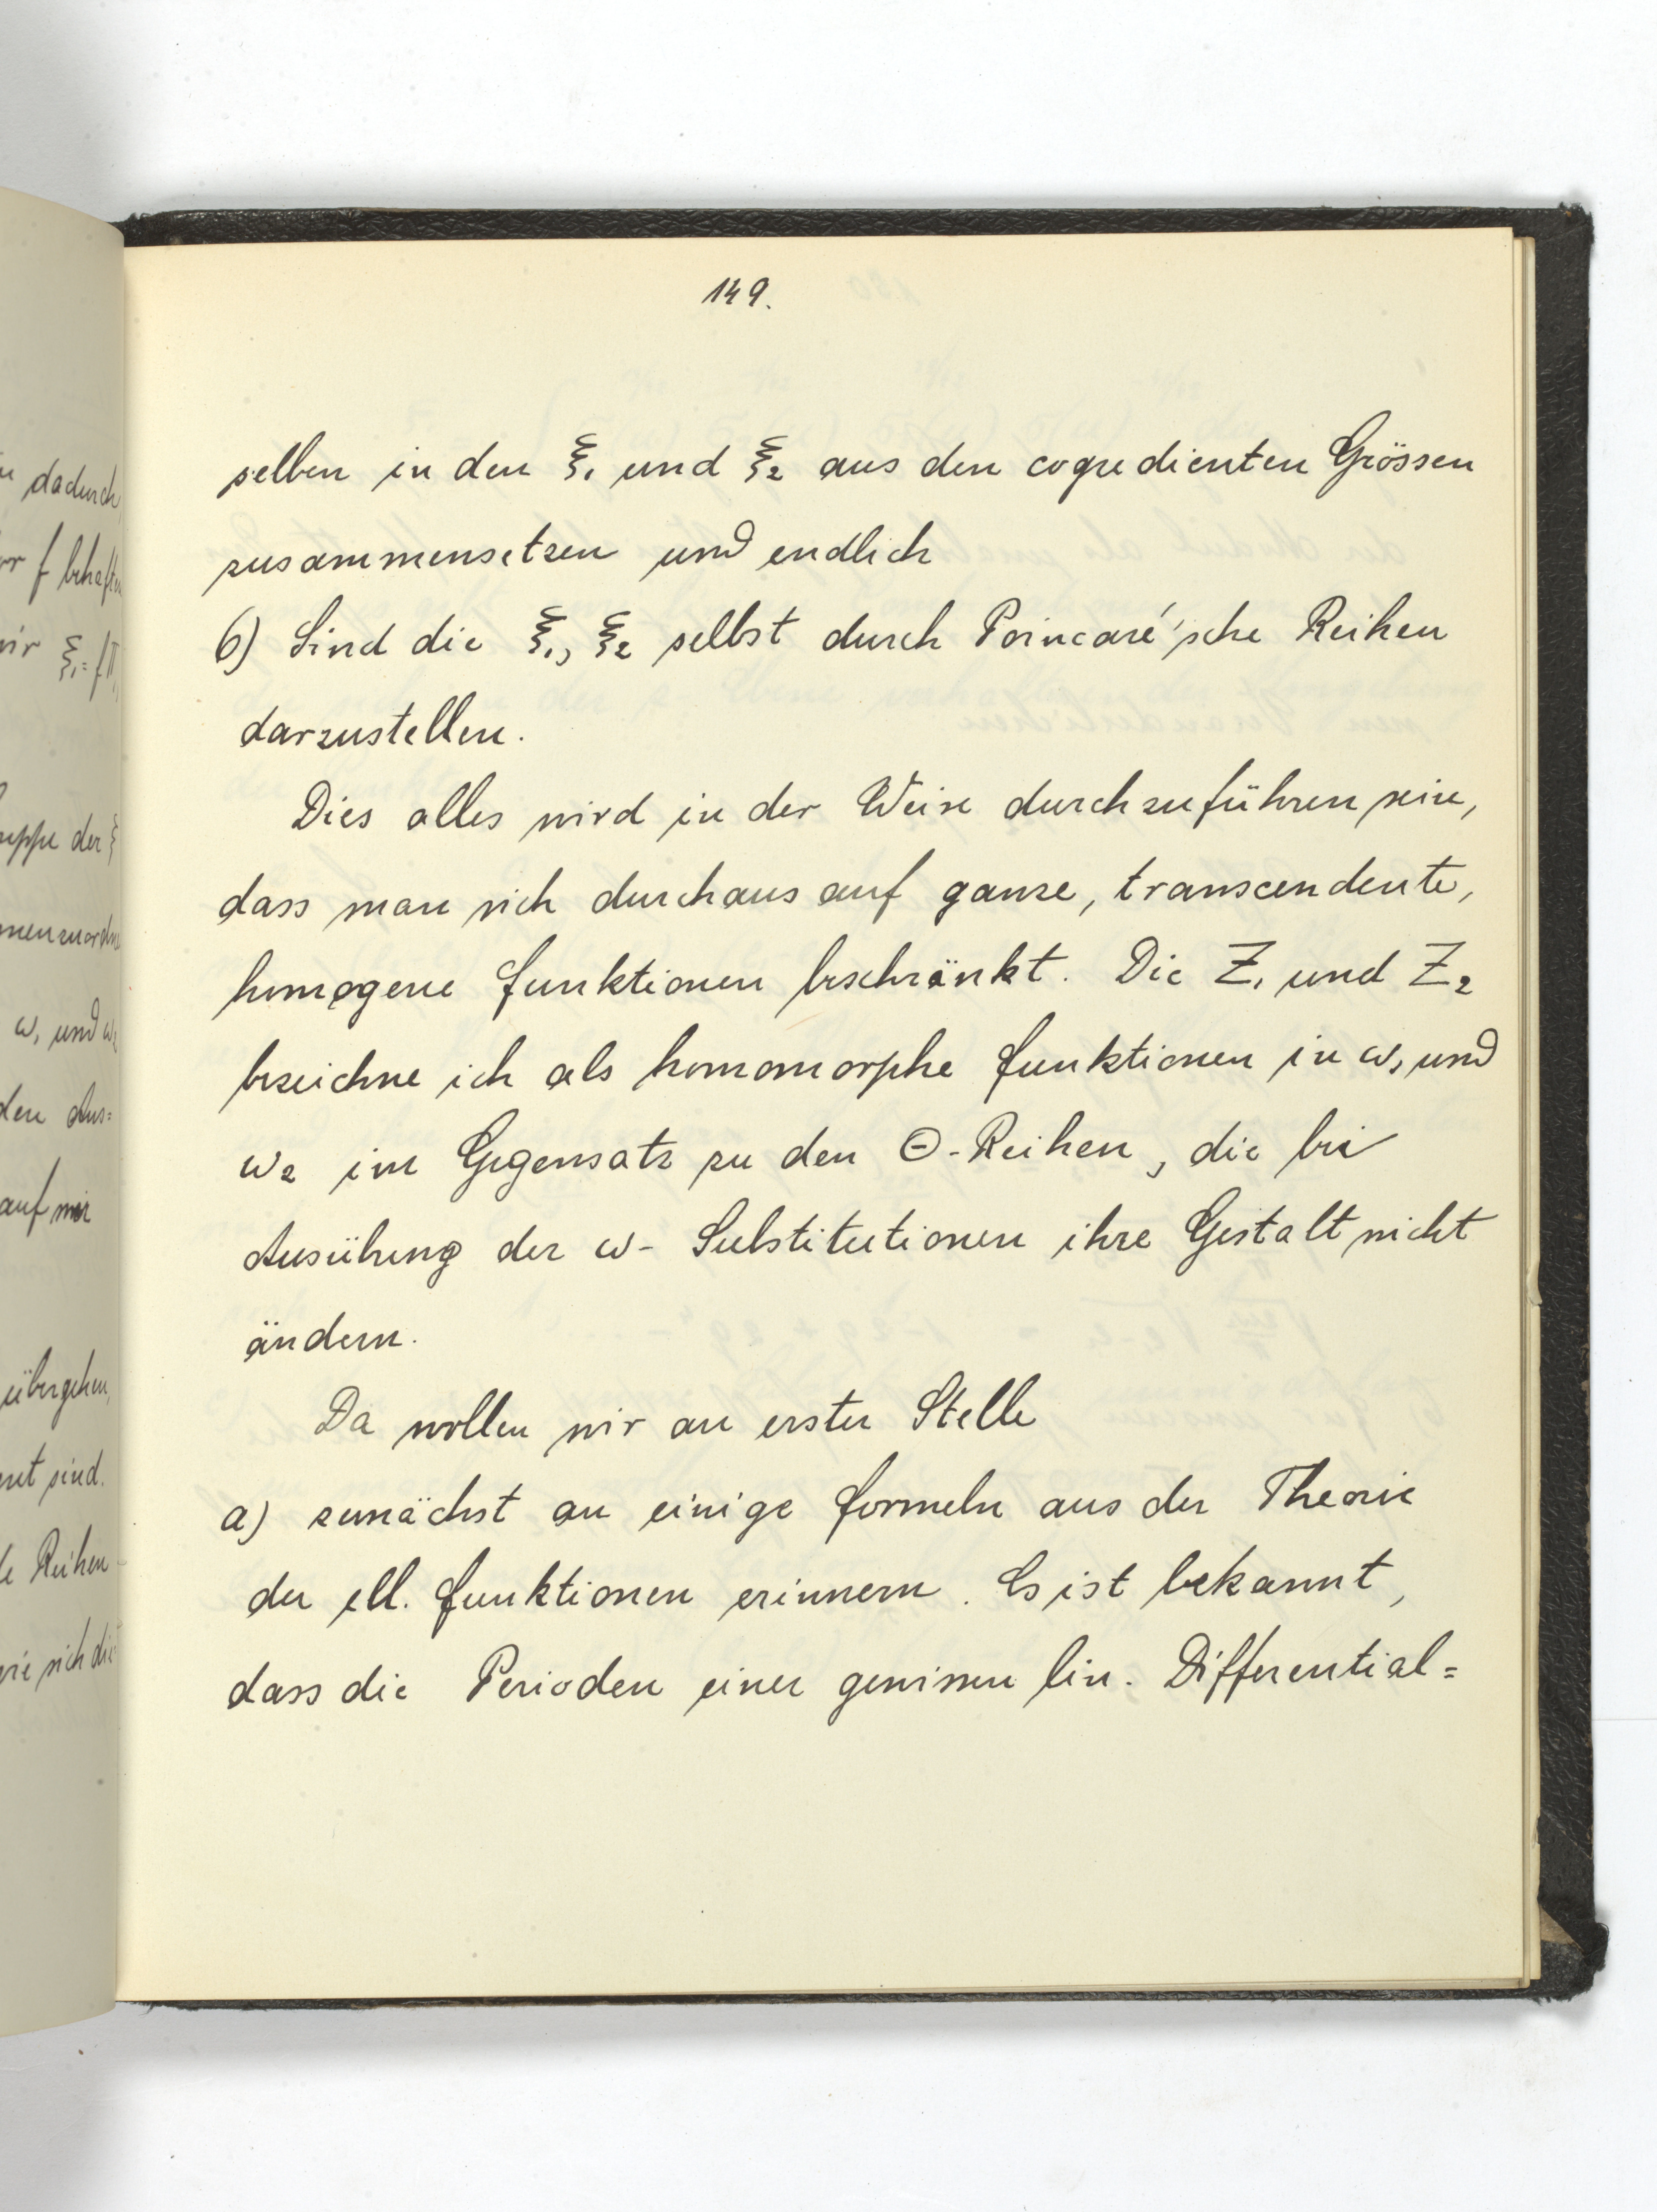 149.
selben in den ξ₁ und ξ₂ aus den cogredienten Grössen
zusammensetzen und endlich
6) Sind die ξ₁, ξ₂ selbst durch Poincaré'sche Reihen
darzustellen.
Dies alles wird in der Weise durchzuführen sein,
dass man sich durchaus auf ganze, transcendente,
homogene Funktionen beschränkt. Die Z₁ und Z₂
bezeichne ich als homomorphe Funktionen in ω₁ und
ω₂ im Gegensatz zu den Θ-Reihen, die bei
Ausübung der ω-Substitutionen ihre Gestalt nicht
ändern.
Da wollen wir an erster Stelle
a) zunächst an einige Formeln aus der Theorie
der ell. Funktionen erinnern. Es ist bekannt,
dass die Perioden einer gewissen lin. Differential=
dadurch
f
wir ξ₁=
der ξ
ω₁ und ω₂
den Aus=
auf mir
übergehen,
sind.
Reihen
wie sich die